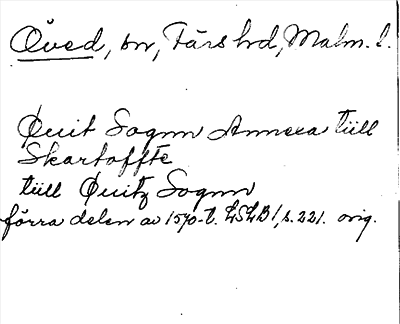 Öved, sn, Färs hd, Malm. l.
Øuit Sognn Annexa tiill
Skartoffte
tiill Øuitz Sognn
förra delen av 1570-t. LSLB 1, s. 221. orig.